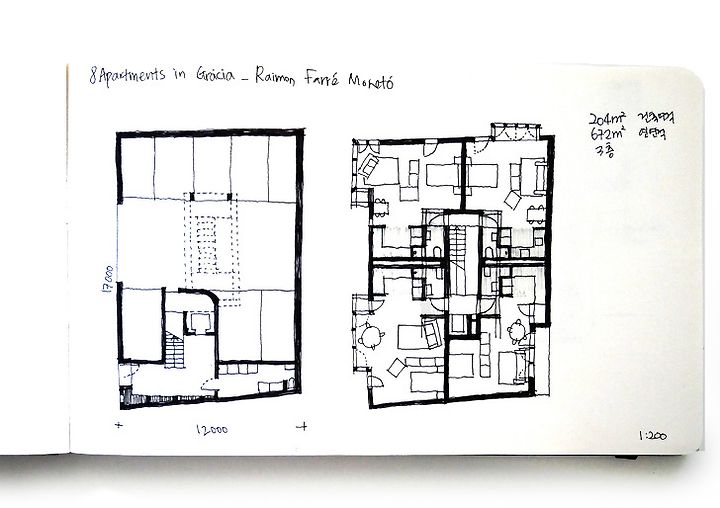 8 Apartments in Gràcia - Raimon Farré Moretó
204m² 건축면적
672m² 연면적
3층
17000
12000
1:200